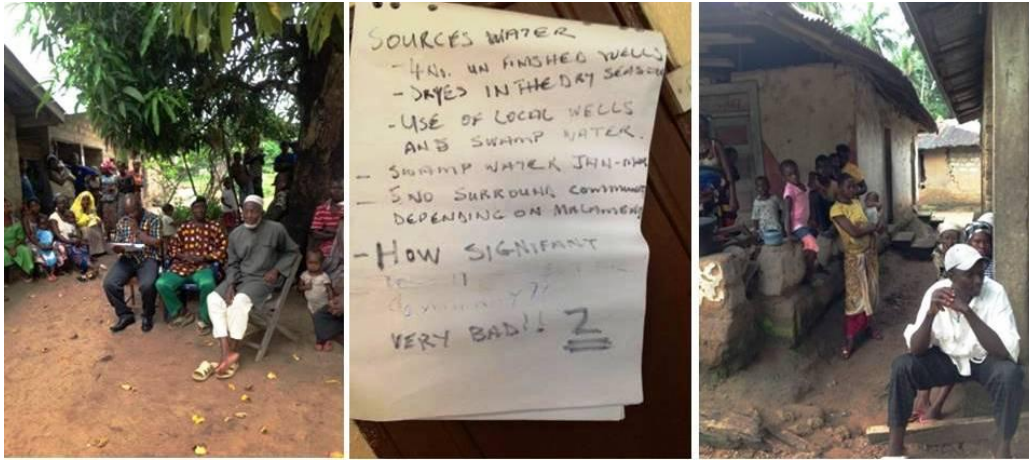 SOURCES WATER
- 4 No. UN FINISHED WELLS
- DRYES IN THE DRY SEASON
- USE OF LOCAL WELLS
AND SWAMP WATER.
- SWAMP WATER JAN-MAR
- 5 NO SURROUND COMMUNIT
DEPENDING ON MALAMEN
- HOW SIGNIFANT
COMMUNITY?
VERY BAD!! 2